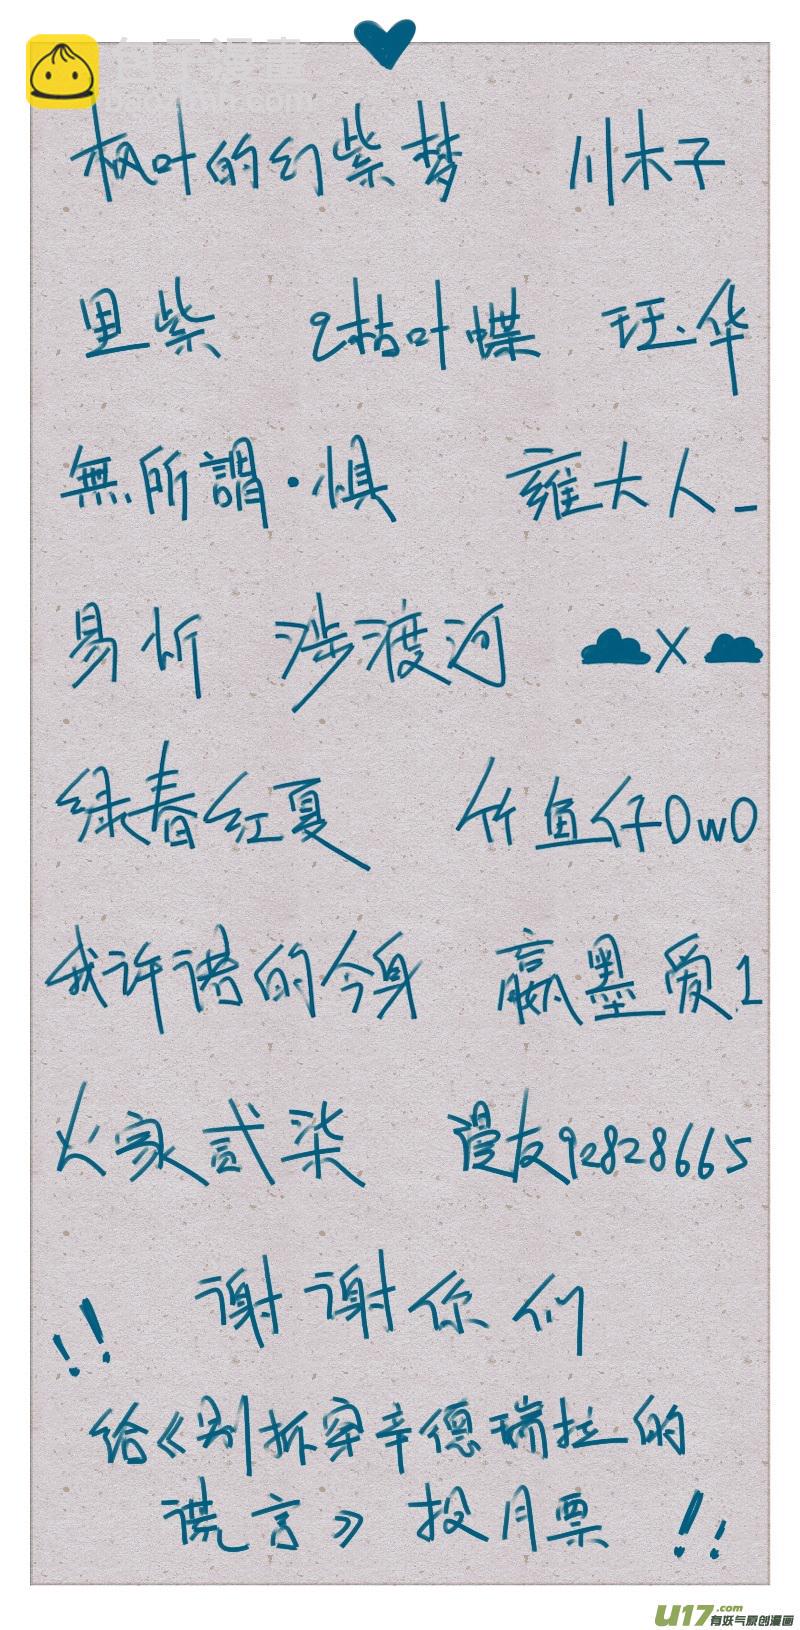 包子漫畫
baozimh.com
枫叶的幻紫梦 川木子
里紫 2枯叶蝶 珏、华
無所謂·惧 雍大人_
易忻 涉渡河 X
绿春红夏 竹鱼仔OwO
我许诺的今身 赢墨爱.1
火家貳柒 漫友92828665
谢谢你们
!!
给《别拆穿辛德瑞拉的
谎言》投月票!!
U17.com
有妖气原创漫画